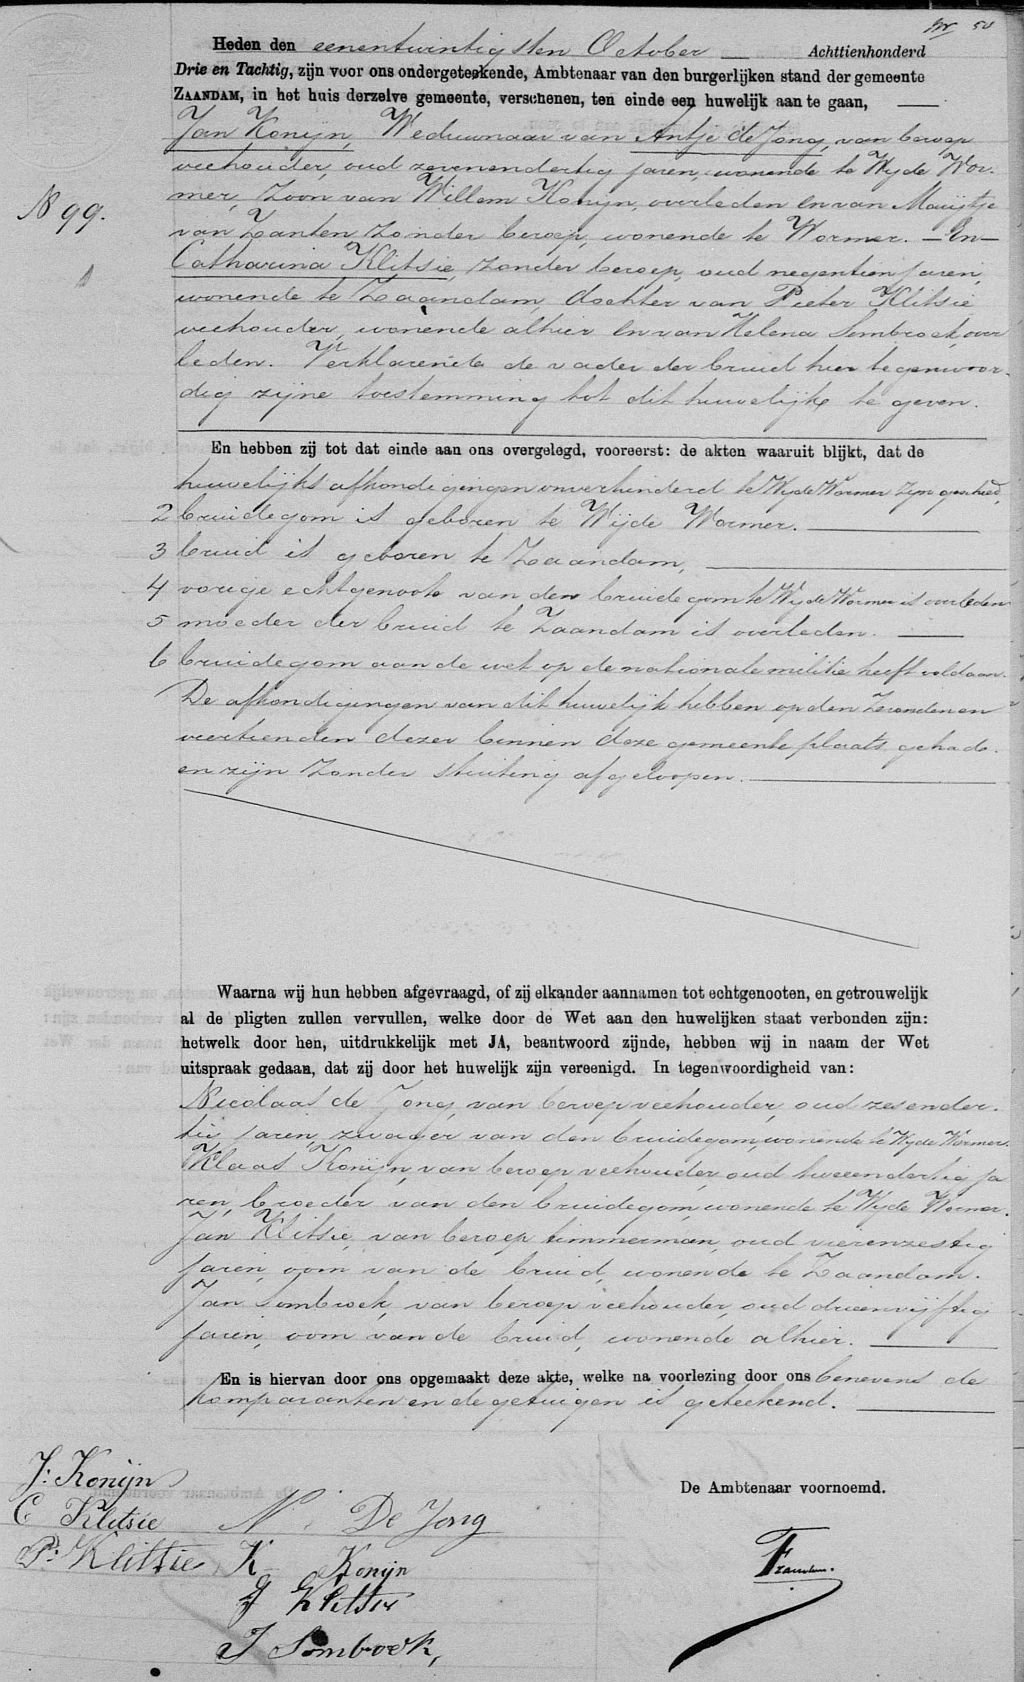 50
Heden den eenentwintigsten October Achttienhonderd
Drie en Tachtig, zijn voor ons ondergeteekende, Ambtenaar van den burgerlijken stand der gemeente
ZAANDAM, in het huis derzelve gemeente, verschenen, ten einde een huwelijk aan te gaan,
Jan Konijn, Weduwnaar van Antje de Jong, van beroep
veehouder, oud zevenendertig jaren, wonende te Wijde Wor-
mer, Zoon van Willem Konijn, overleden en van Maijtje
van Zanten zonder beroep, wonende te Wormer. — En —
N 99.
Catharina Klitsie, zonder beroep, oud negentien jaren,
1
wonende te Zaandam, dochter van Pieter Klitsie
veehouder, wonende alhier en van Helena Sombroek, over
leden. Verklarende de vader der bruid hier tegenwoor-
dig zijne toestemming tot dit huwelijk te geven.
En hebben zij tot dat einde aan ons overgelegd, vooreerst: de akten waaruit blijkt, dat de
huwelijks afkondigingen onverhinderd te Wijde Wormer zijn geschied,
2 bruidegom is geboren te Wijde Wormer.
3 bruid is geboren te Zaandam,
4 vorige echtgenoote van den bruidegom te Wijde Wormer is overleden
5 moeder der bruid te Zaandam is overleden.
6 bruidegom aan de wet op de nationale militie heeft voldaan.
De afkondigingen van dit huwelijk hebben op den Zevenden en
veertienden dezer binnen deze gemeente plaats gehad.
en zijn zonder stuiting afgeloopen.
Waarna wij hun hebben afgevraagd, of zij elkander aannamen tot echtgenooten, en getrouwelijk
al de pligten zullen vervullen, welke door de Wet aan den huwelijken staat verbonden zijn:
hetwelk door hen, uitdrukkelijk met JA, beantwoord zijnde, hebben wij in naam der Wet
uitspraak gedaan, dat zij door het huwelijk zijn vereenigd. In tegenwoordigheid van:
Nicolaas de Jong, van beroep veehouder, oud zesender-
tig jaren, zwager van den bruidegom, wonende te Wijde Wormer.
Klaas Konijn, van beroep veehouder, oud tweeendertig ja
ren, broeder van den bruidegom, wonende te Wijde Wormer.
Jan Klitsie, van beroep timmerman, oud vierenzestig
jaren, oom van de bruid, wonende te Zaandam.
Jan Sombroek, van beroep veehouder, oud drieenvijftig
jaren, oom van de bruid, wonende alhier.
En is hiervan door ons opgemaakt deze akte, welke na voorlezing door ons benevens de
komparanten en de getuigen is geteekend.
J: Konijn
De Ambtenaar voornoemd.
C Klitsie N. De Jong
P: Klitsie K Konijn
J Klitsie
J Sombroek,